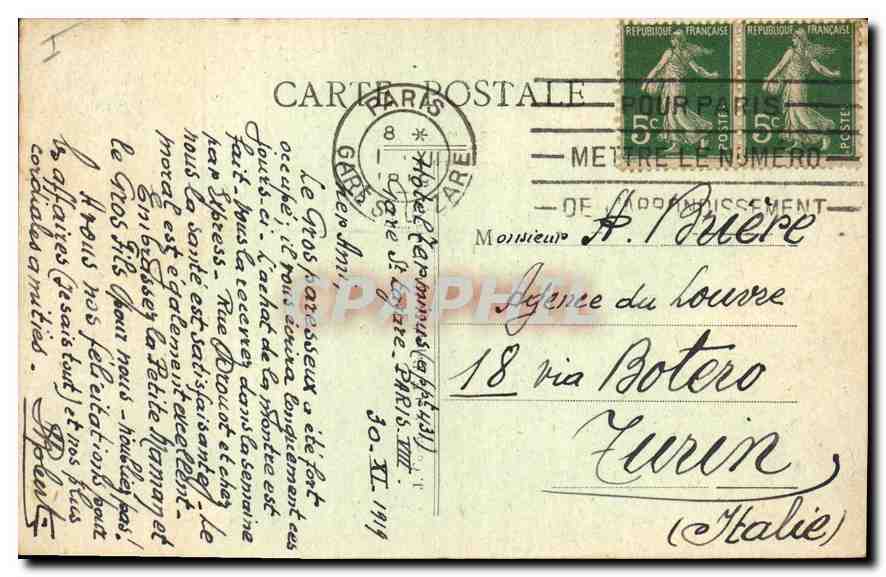 I
CARTE POSTALE
RÉPUBLIQUE FRANÇAISE
5c
POSTES
RÉPUBLIQUE FRANÇAISE
5c
POSTES
PARIS
8 *
GARE S
ZARE
POUR PARIS
METTRE LE NUMERO
DE L'ARRONDISSEMENT
Monsieur A. Buère
Agence du Louvre
18 via Botero
Turin
(Italie)
DELCAMPHEL
Hôtel Terminus (appt 431)
Gare St Lazare - PARIS. VIII
30-XI-1919
Cher Ami
Le Gros paresseux a été fort
occupé; il vous écrira longuement ces
jours-ci. L'achat de la montre est
fait. Vous la recevrez dans la semaine
par Express. Rue Drouot et chez
nous la santé est satisfaisante. Le
moral est également excellent.
Embrassez la Petite Maman et
le Gros Fils (pour nous - n'oubliez pas!
A vous nos félicitations pour
les affaires (je sais tout) et nos plus
cordiales amitiés.